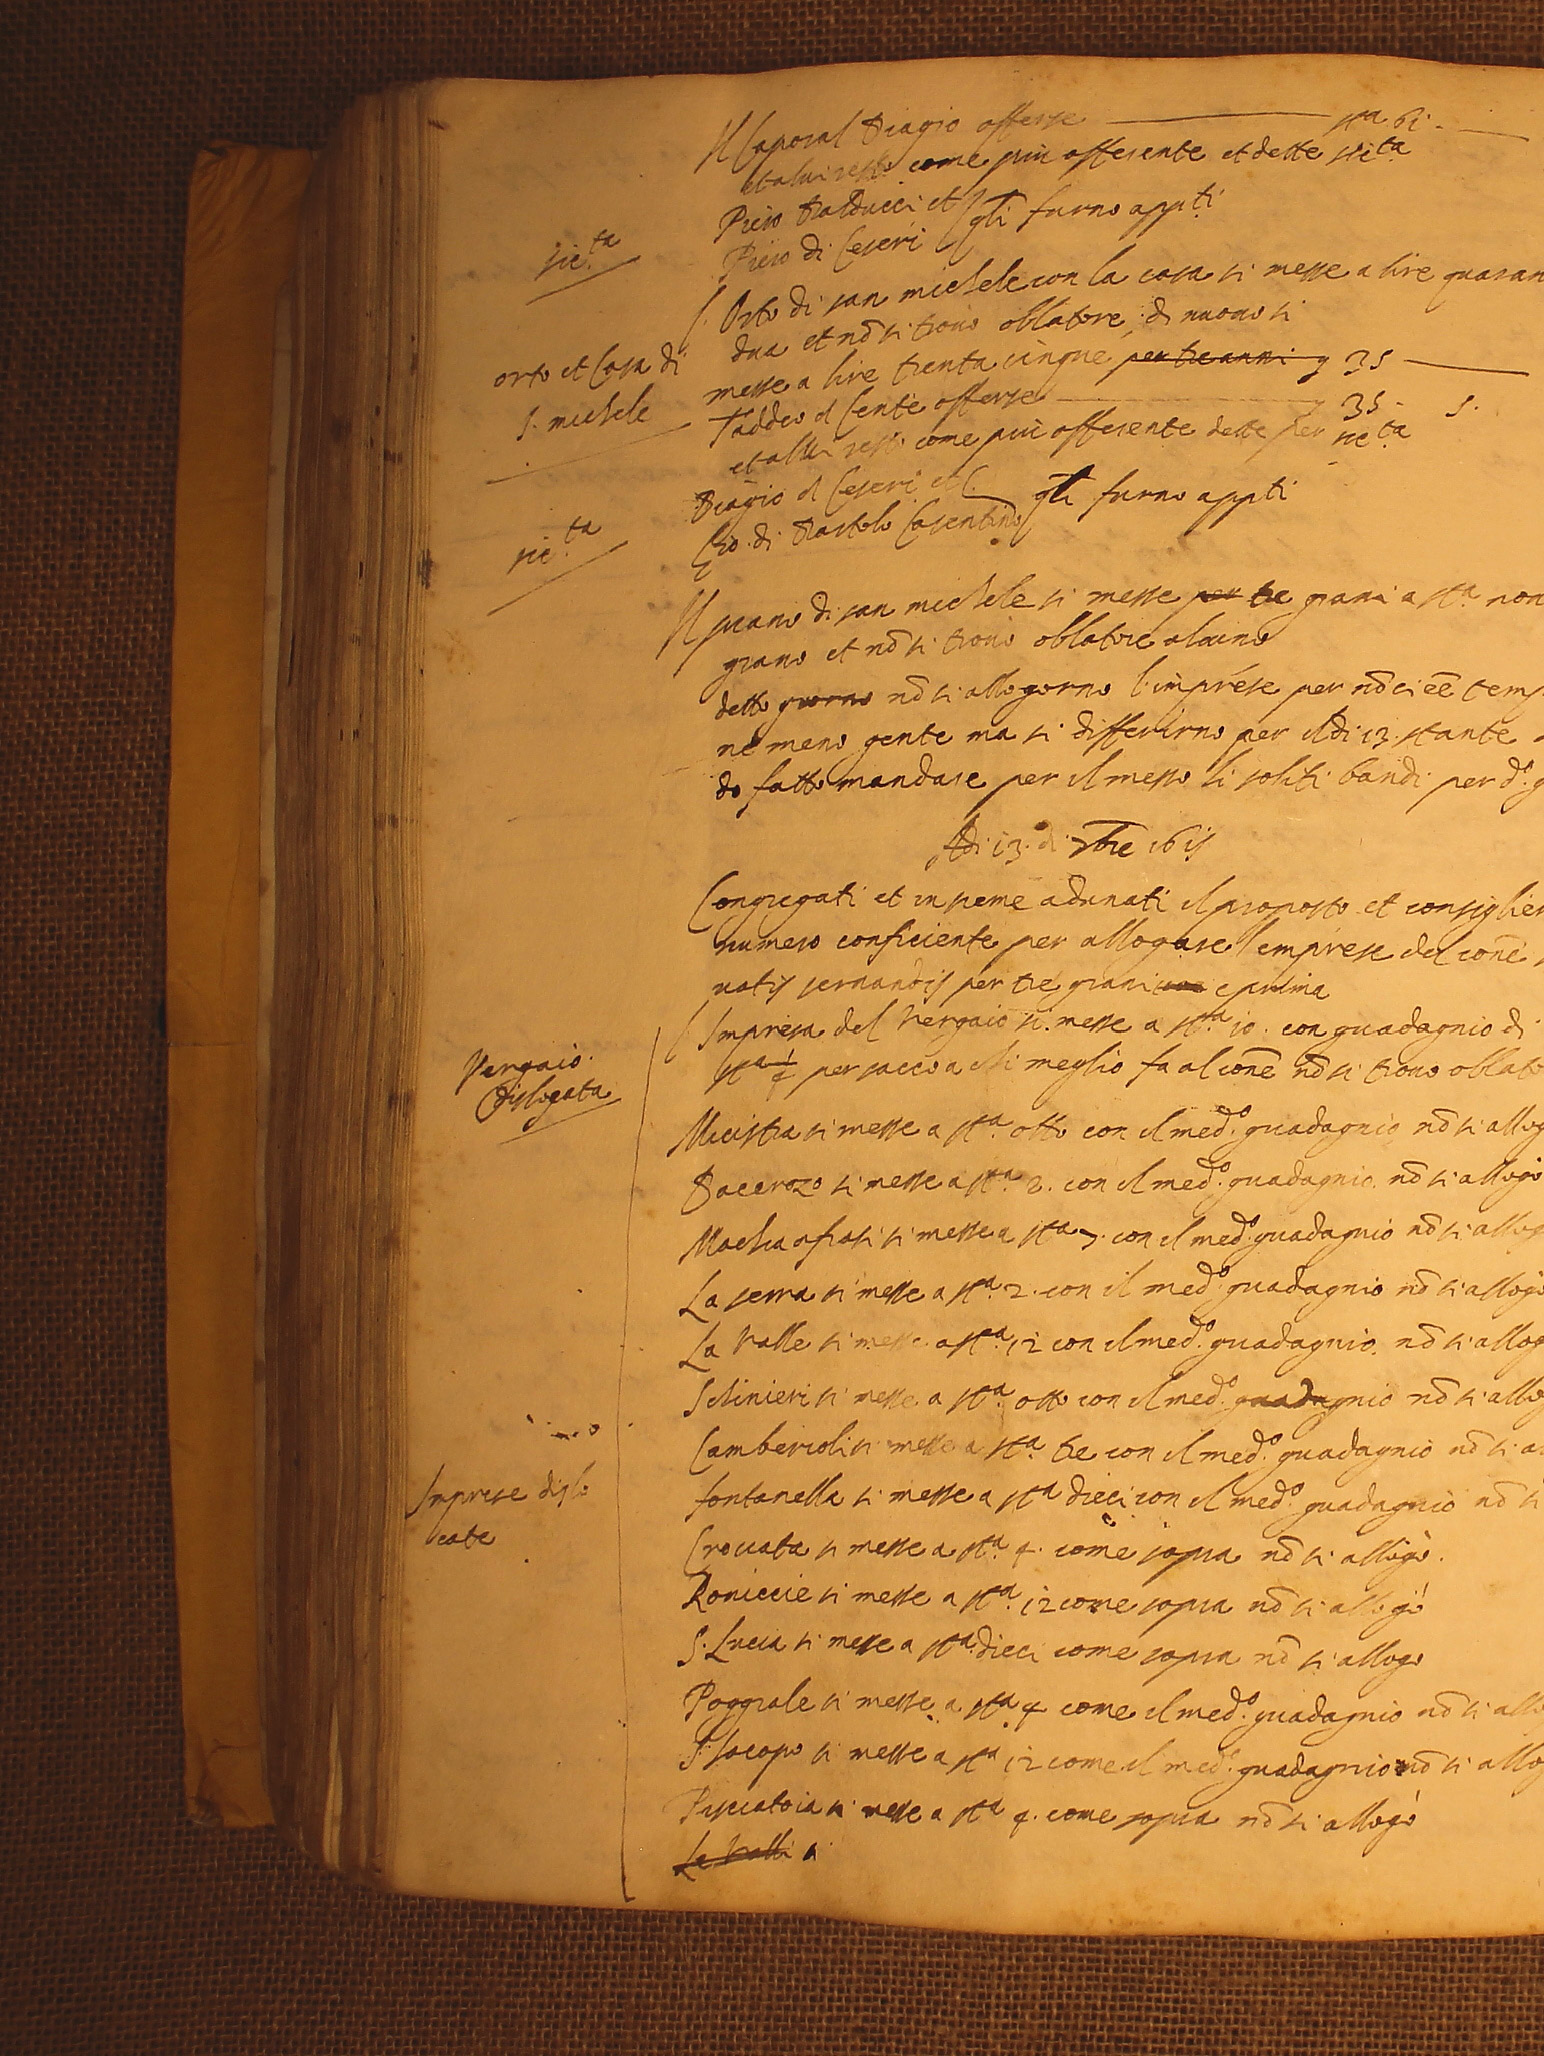 Il Caporal Biagio offerse sta 61
et a lui restò come più offerente et dette sic.ta
Piero Balducci et
gli furno app.ti
Piero di Ceseri
sic.ta
L'Orto di san michele con la casa si messe a lire quaran
dua et nō si trovò oblatore, di nuovo si
orto et Casa di
S. michele
messe a lire trenta cinque per tre anni 35
Taddeo d Cente offerse 35 - 5.
et a llui restò come più offerente dette per sic.ta
sic.ta
Biagio d Ceseri et
gli furno app.ti
Gio. di Bartolo Casentino
Il piano di san michele si messe per tre grani a sta. non
grano et nō si trovò oblatore alcuno
detto giorno nō si allogorno l'imprese per nō ci eē temp
ne meno gente ma si differirno per il dì 13 stante
do fatto mandare per il messo li soliti bandi per d.
Adi 13. di 7bre 1615
Congregati et insieme adunati il proposto et consiglier
numero conficiente per allogare l'imprese del conē
vatis servandis per tre grani e prima
Vergaio.
dislogata
L'Impresa del Vergaio si messe a sta. 10. con guadagnio di
sta ¼ per sacco a chi meglio fa al conē nō si trovò oblato
Micistra si messe a sta. otto con il med.o guadagnio nō si allog
Bacerozo si messe a sta. 2. con il med.o guadagnio. nō si allogò
si messe a sta 7. con il med.o guadagnio nō si allog
La serra si messe a sta. 2. con il med.o guadagnio nō si allogò
La Valle si messe a sta. 12 con il med.o guadagnio. nō si allog
Schinieri si messe a sta. otto con il med.o guadagnio nō si allog
Camberioli si messe a sta. tre con il med.o guadagnio nō si a
fontanella si messe a sta dieci con il med.o guadagnio nō si
Imprese dislo
cate
Crociata si messe a sta. 4. come sopra nō si allogò.
Roniccie si messe a sta. 12 come sopra nō si allogò
S. Lucia si messe a sta. dieci come sopra nō si allogò
Poggiale si messe a sta 4 come il med.o guadagnio nō si allo
S Iacopo si messe a sta 12 come il med.o guadagnio nō si allog
Pesciatoia si messe a sta 4. come sopra nō si allogò
Le Valli